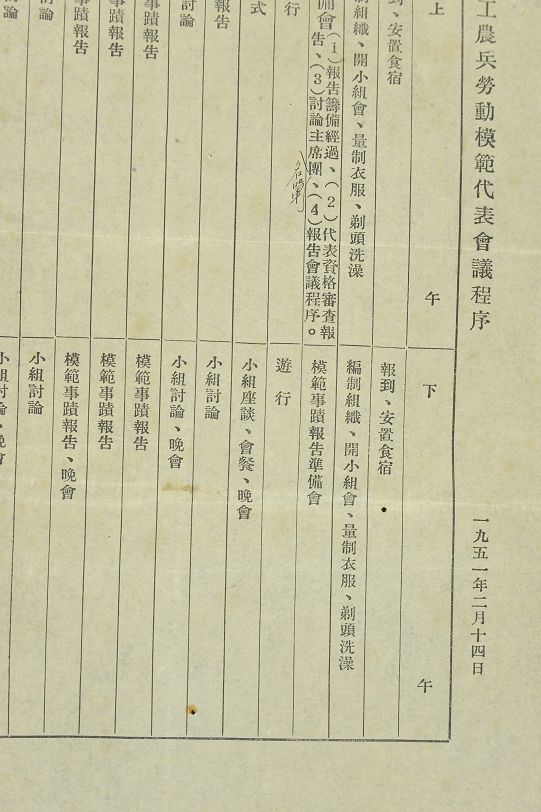 工農兵勞動模範代表會議程序
一九五一年二月十四日
上 午
下 午
到、安置食宿
報到、安置食宿
制組織、開小組會、量制衣服、剃頭洗澡
編制組織、開小組會、量制衣服、剃頭洗澡
備會（1）報告籌備經過、（2）代表資格審查報
告、（3）討論主席團、（4）報告會議程序。
模範事蹟報告準備會
行
遊行
式
小組座談、會餐、晚會
報告
小組討論
討論
小組討論、晚會
事蹟報告
模範事蹟報告
事蹟報告
模範事蹟報告
事蹟報告
模範事蹟報告、晚會
討論
小組討論
討論
小組討論、晚會